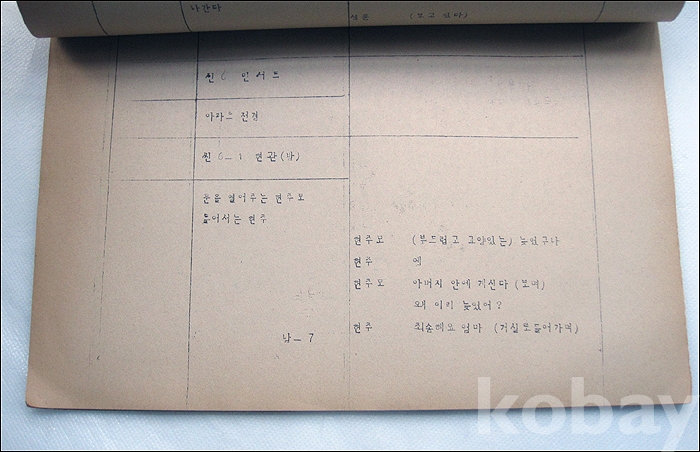 나간다
(보고 있다)
씬 6 인서트
아파트 전경
씬 6-1 현관(밤)
문을 열어주는 현주모
들어서는 현주
현주모 (부드럽고 교양있는) 늦었구나
현주 예
현주모 아버지 안에 계신다 (보며)
왜 이리 늦었어?
현주 죄송해요 엄마 (거실로들어가며)
남-7
kobay